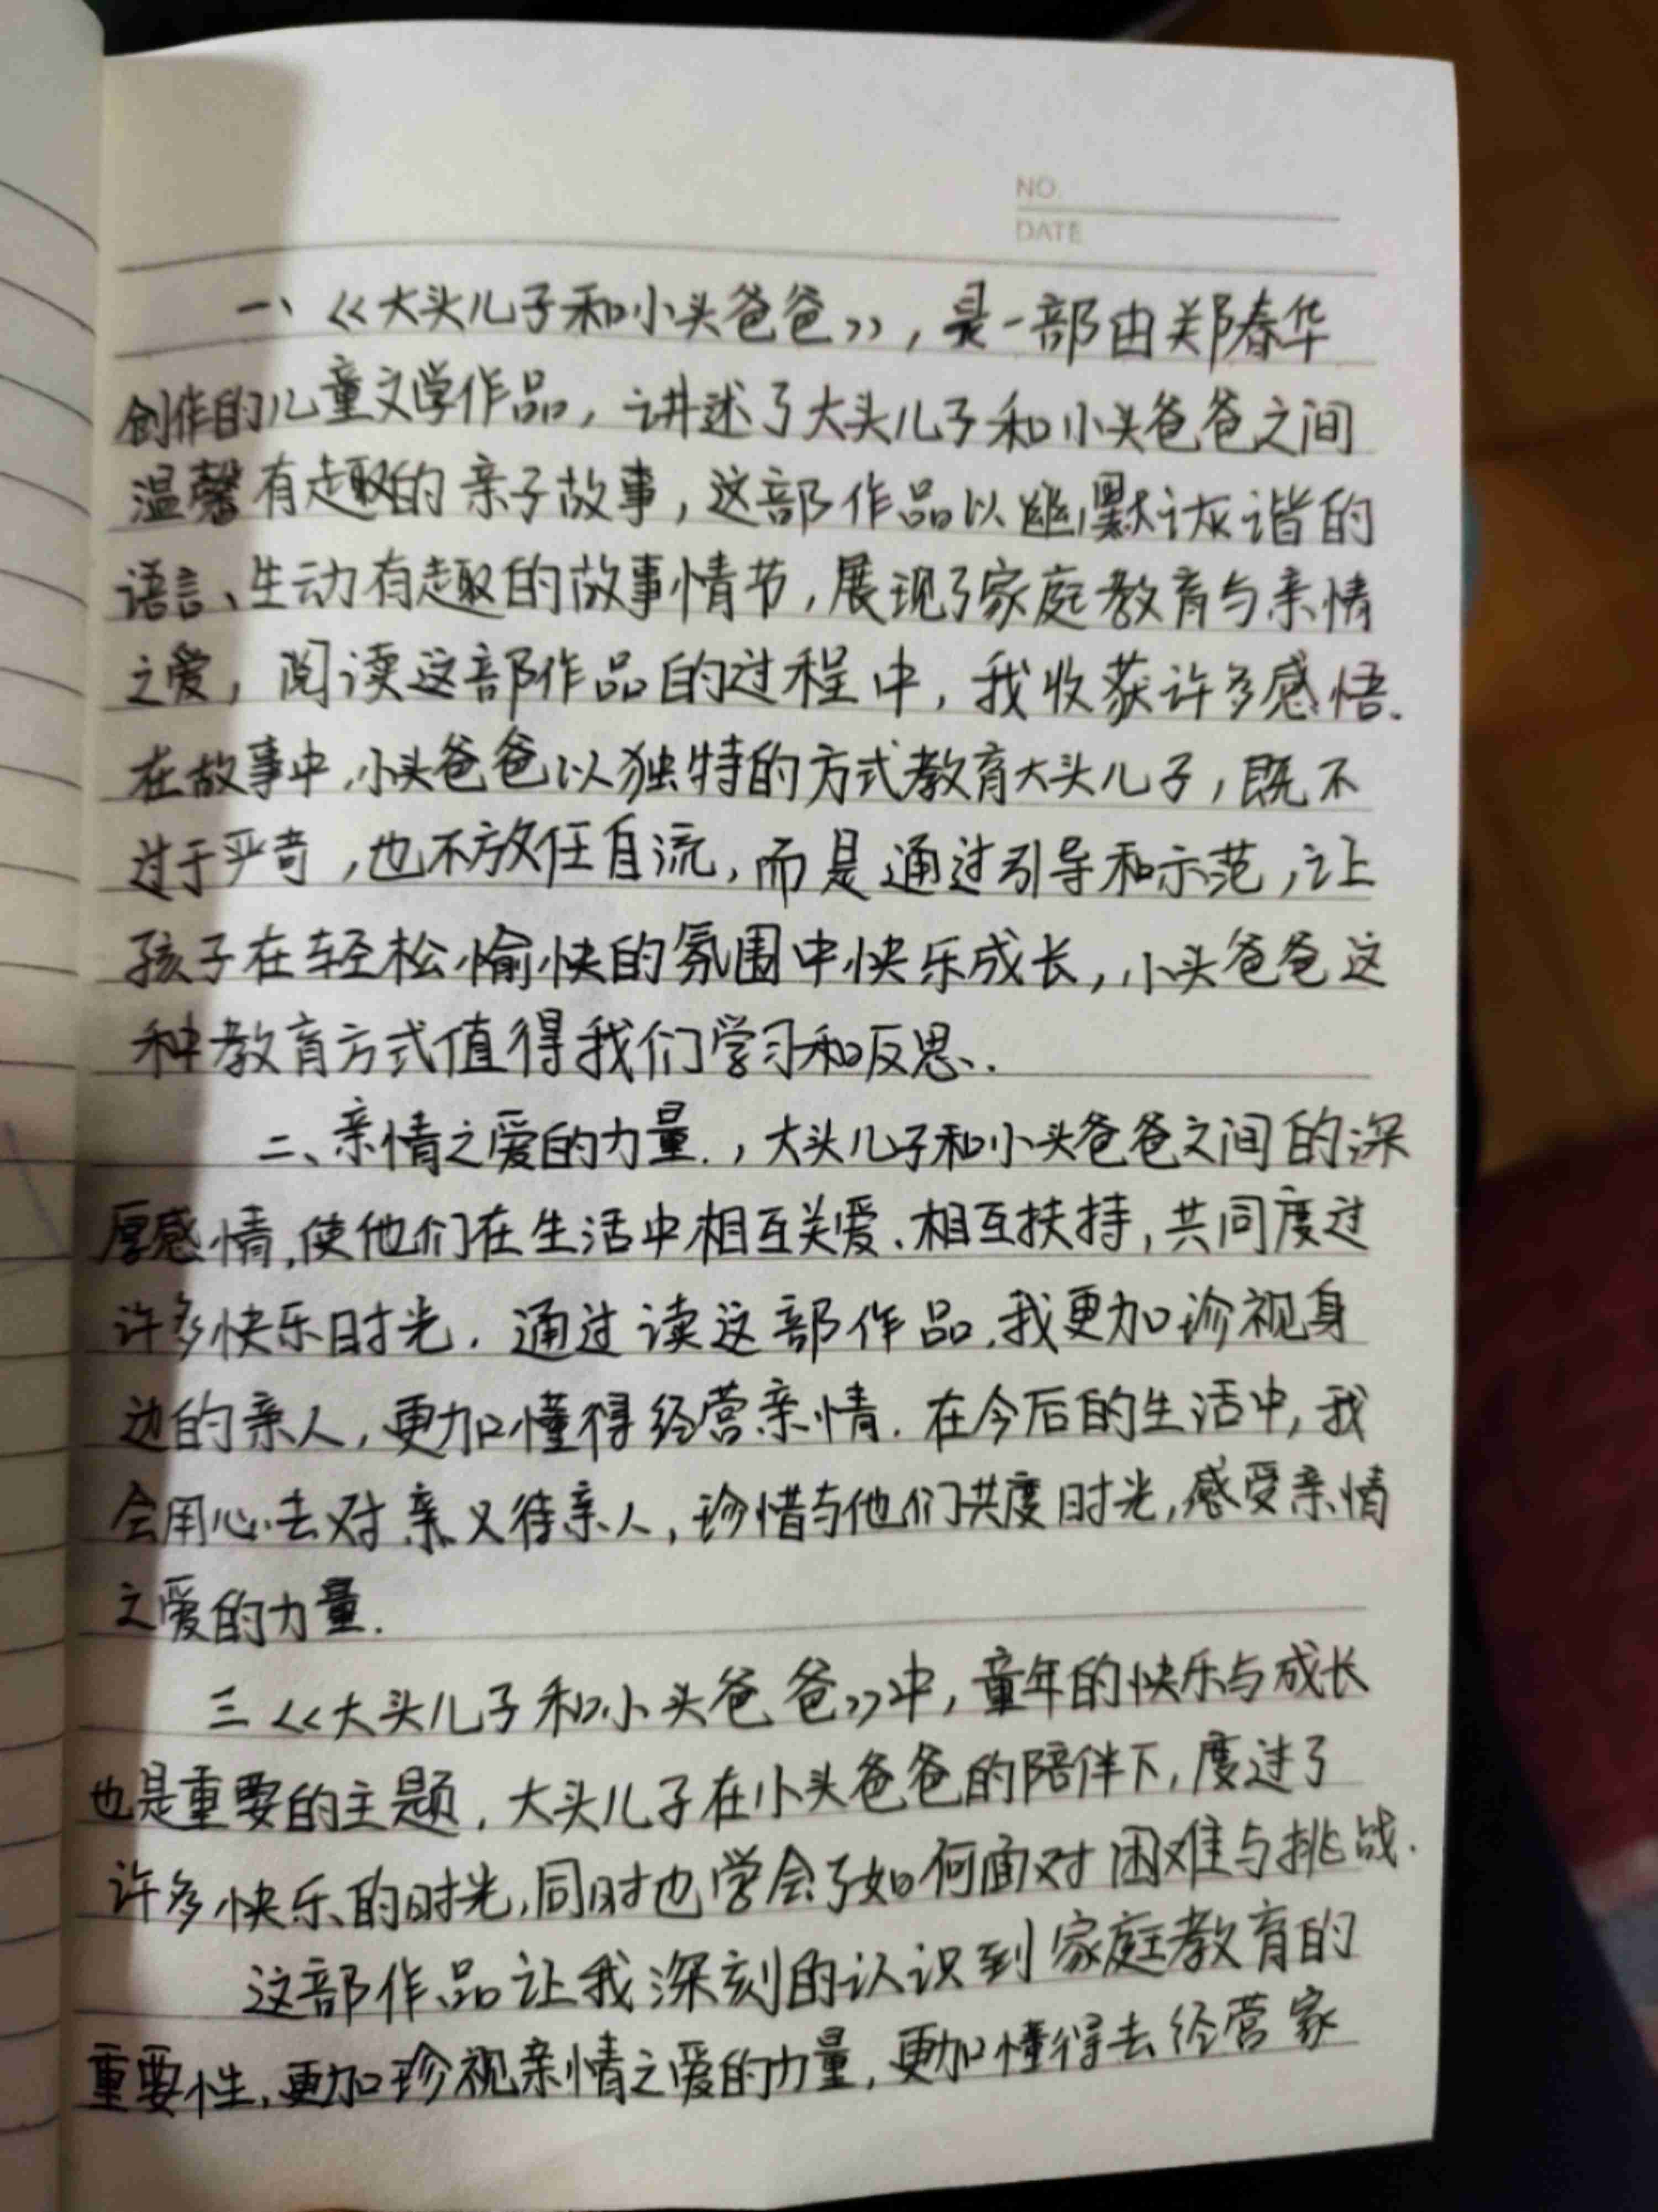 NO.
DATE
一、《大头儿子和小头爸爸》，是一部由郑春华
创作的儿童文学作品，讲述了大头儿子和小头爸爸之间
温馨有趣的亲子故事，这部作品以幽默诙谐的
语言、生动有趣的故事情节，展现了家庭教育与亲情
之爱，阅读这部作品的过程中，我收获许多感悟.
在故事中，小头爸爸以独特的方式教育大头儿子，既不
过于严苛，也不放任自流，而是通过引导和示范，让
孩子在轻松愉快的氛围中快乐成长，小头爸爸这
种教育方式值得我们学习和反思.
二、亲情之爱的力量.，大头儿子和小头爸爸之间的深
厚感情，使他们在生活中相互关爱、相互扶持，共同度过
许多快乐时光. 通过读这部作品，我更加珍视身
边的亲人，更加懂得经营亲情. 在今后的生活中，我
会用心去对亲义待亲人，珍惜与他们共度时光，感受亲情
之爱的力量.
三《大头儿子和小头爸爸》中，童年的快乐与成长
也是重要的主题，大头儿子在小头爸爸的陪伴下，度过了
许多快乐的时光，同时也学会了如何面对困难与挑战.
这部作品让我深刻的认识到家庭教育的
重要性，更加珍视亲情之爱的力量，更加懂得去经营家